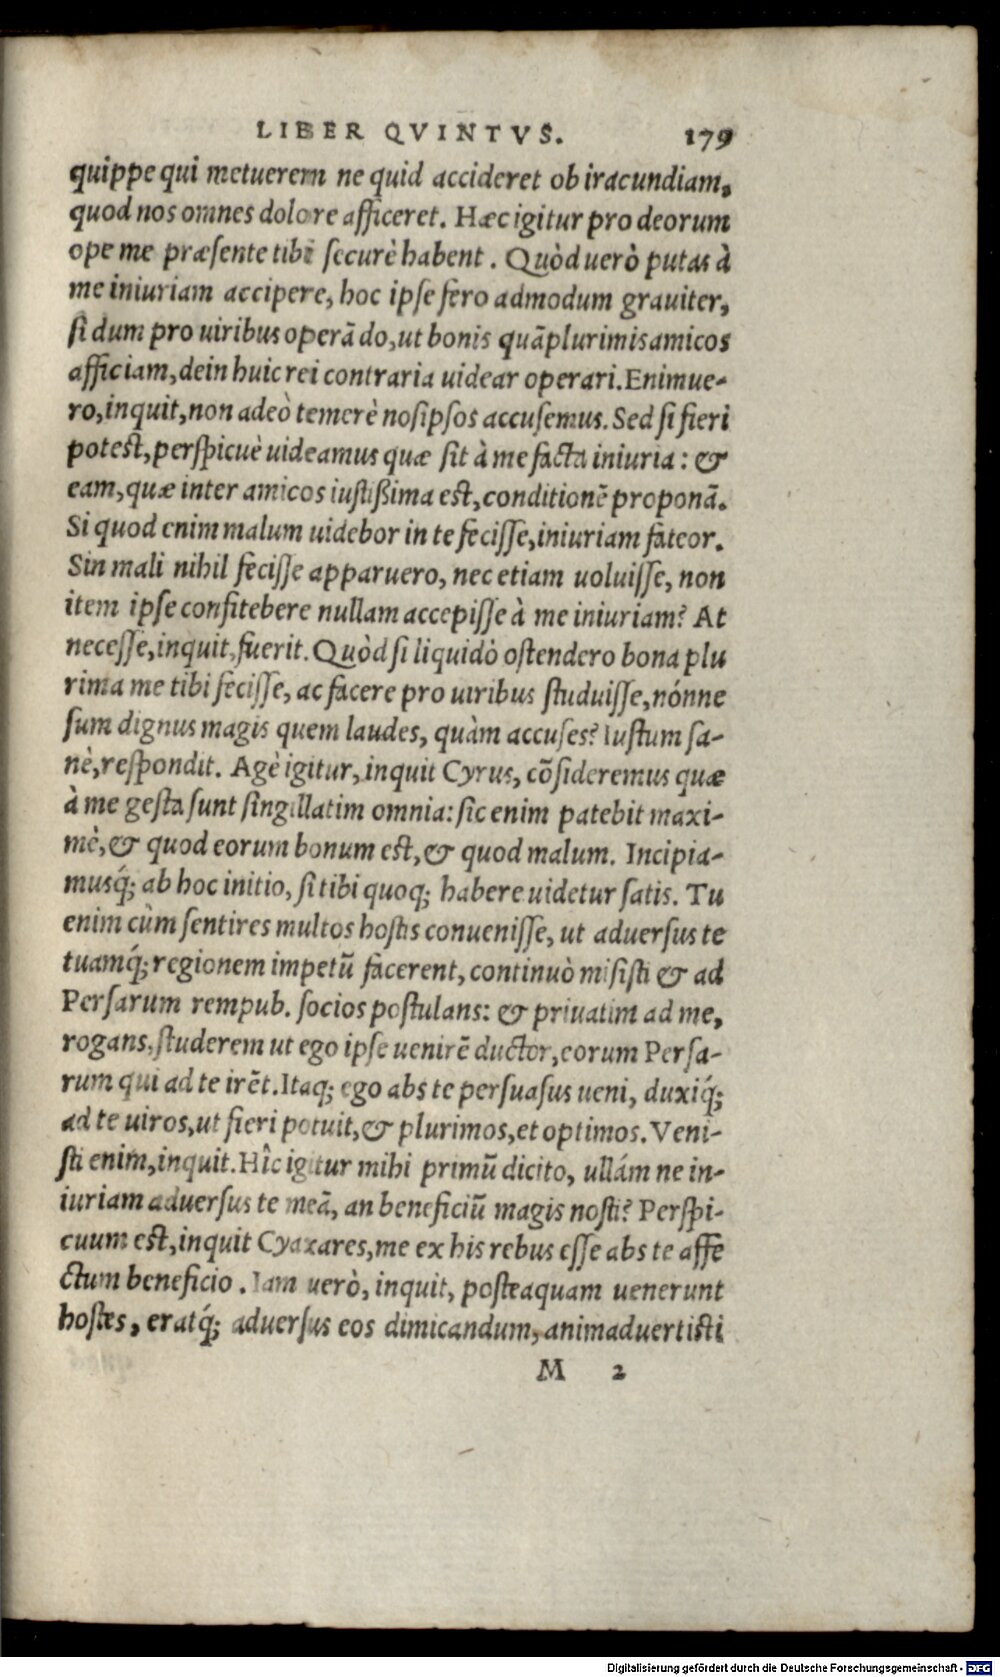 LIBER QVINTVS. 179
quippe qui metuerem ne quid accideret ob iracundiam,
quod nos omnes dolore afficeret. Hæc igitur pro deorum
ope me præsente tibi securè habent. Quòd uerò putas à
me iniuriam accipere, hoc ipse fero admodum grauiter,
si dum pro uiribus operã do, ut bonis quãplurimis amicos
afficiam, dein huic rei contraria uidear operari. Enimue-
ro, inquit, non adeò temerè nosipsos accusemus. Sed si fieri
potest, perspicuè uideamus quæ sit à me facta iniuria: &
eam, quæ inter amicos iustißima est, conditionẽ proponã.
Si quod enim malum uidebor in te fecisse, iniuriam fateor.
Sin mali nihil fecisse apparuero, nec etiam uoluisse, non
item ipse confitebere nullam accepisse à me iniuriam? At
necesse, inquit, fuerit. Quòd si liquidò ostendero bona plu
rima me tibi fecisse, ac facere pro uiribus studuisse, nónne
sum dignus magis quem laudes, quàm accuses? Iustum sa-
nè, respondit. Agè igitur, inquit Cyrus, cõsideremus quæ
à me gesta sunt singillatim omnia: sic enim patebit maxi-
mè, & quod eorum bonum est, & quod malum. Incipia-
musq́; ab hoc initio, si tibi quoq; habere uidetur satis. Tu
enim cùm sentires multos hostis conuenisse, ut aduersus te
tuamq́; regionem impetũ facerent, continuò misisti & ad
Persarum rempub. socios postulans: & priuatim ad me,
rogans, studerem ut ego ipse uenirẽ ductor, eorum Persa-
rum qui ad te irẽt. Itaq; ego abs te persuasus ueni, duxiq́;
ad te uiros, ut fieri potuit, & plurimos, et optimos. Veni-
sti enim, inquit. Hîc igitur mihi primũ dicito, ullám ne in-
iuriam aduersus te meã, an beneficiũ magis nosti? Perspi-
cuum est, inquit Cyaxares, me ex his rebus esse abs te affe
ctum beneficio. Iam uerò, inquit, posteaquam uenerunt
hostes, eratq́; aduersus eos dimicandum, animaduertisti
M 2
Digitalisierung gefördert durch die Deutsche Forschungsgemeinschaft - DFG